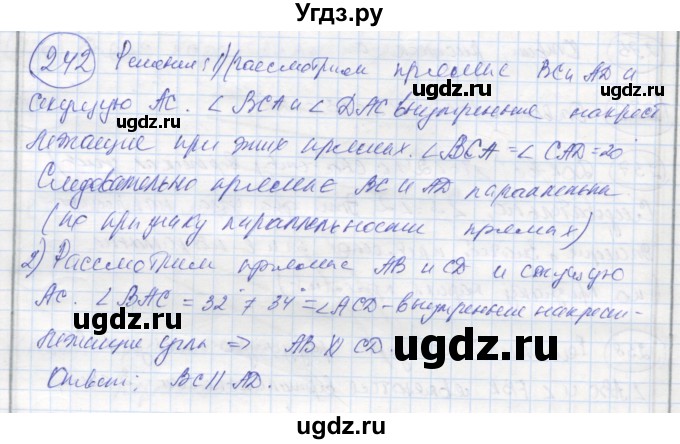 Угдз.ру
242 Решения: 1) Рассмотрим прямые BC и AD и
секущую AC. ∠BCA и ∠DAC внутренние накрест
лежащие при этих прямых. ∠BCA = ∠CAD = 20°
Следовательно прямые BC и AD параллельны
(по признаку параллельности прямых)
2) Рассмотрим прямые AB и CD и секущую
AC. ∠BAC = 32° ≠ 34° = ∠ACD - внутренние накрест-
лежащие углы => AB ∦ CD.
Ответ: BC || AD.
ugdz.ru
ugdz.ru
ugdz.ru
ugdz.ru
ugdz.ru
ugdz.ru
Угдз.ру